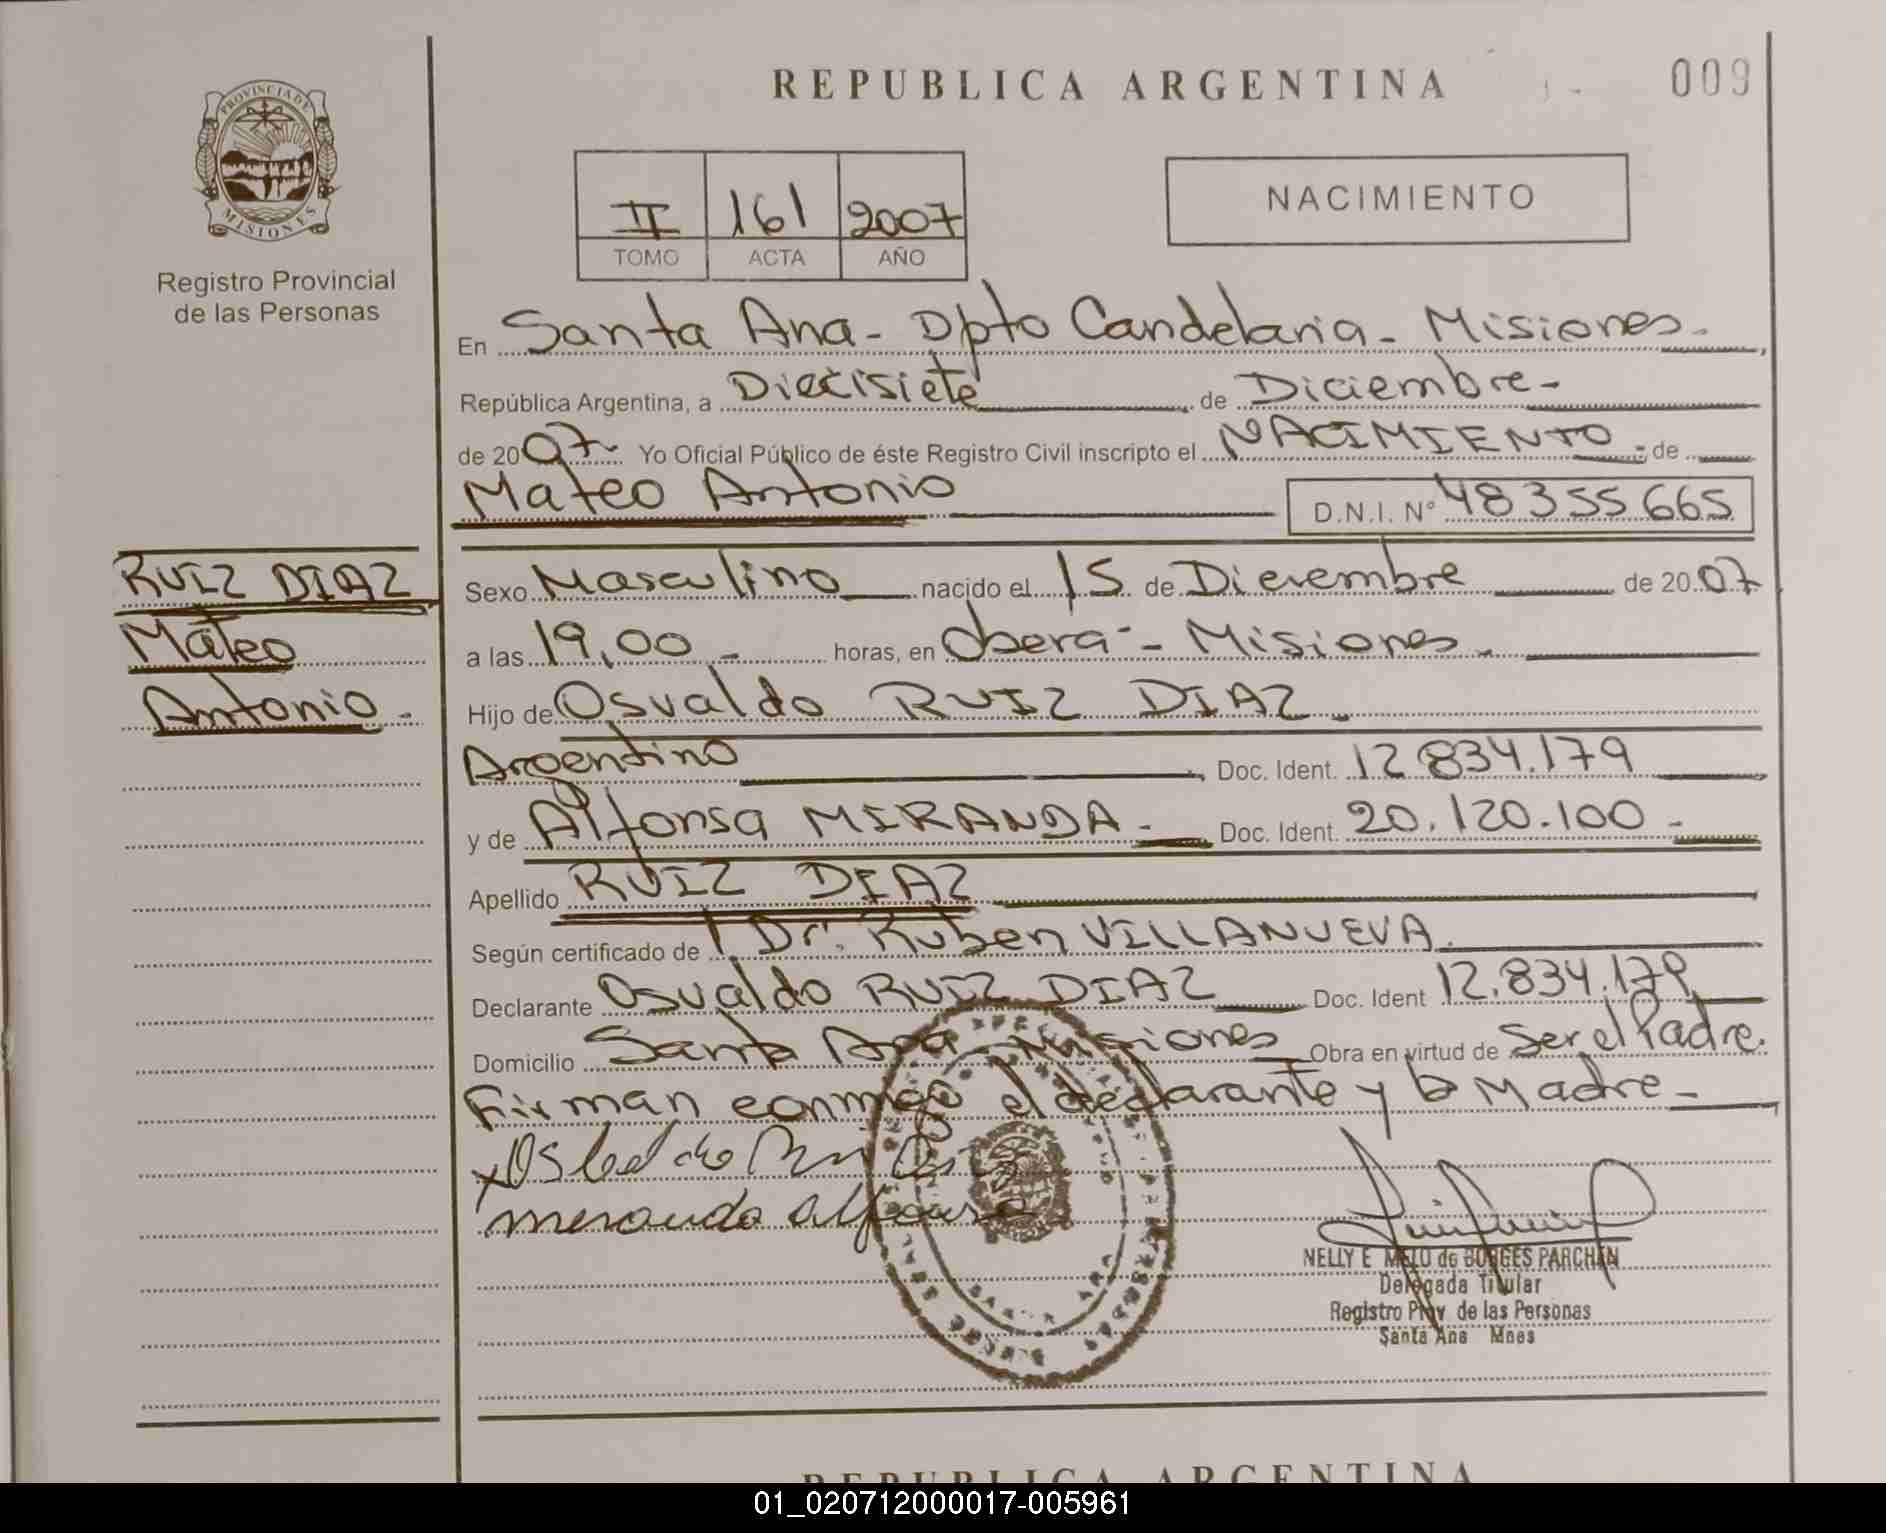 REPUBLICA ARGENTINA
009
PROVINCIA DE
MISIONES
Registro Provincial
de las Personas
II 161 2007
TOMO ACTA AÑO
NACIMIENTO
En Santa Ana - Dpto Candelaria - Misiones.
República Argentina, a Diecisiete de Diciembre -
de 2007 - Yo Oficial Público de éste Registro Civil inscripto el NACIMIENTO - de
Mateo Antonio D.N.I. N° 48355665
RUIZ DIAZ
Mateo
Antonio -
Sexo Masculino nacido el 15 de Diciembre de 2007
a las 19,00 - horas, en Obera - Misiones.
Hijo de Osvaldo RUIZ DIAZ.
Argentino, Doc. Ident. 12 834.179
y de Alfonsa MIRANDA - Doc. Ident. 20.120.100 -
Apellido RUIZ DIAZ
Según certificado de Dr. Ruben VILLANUEVA.
Declarante Osvaldo RUIZ DIAZ Doc. Ident 12.834.179
Domicilio Santa Ana - Misiones Obra en virtud de Ser el Padre.
Firman conmigo el declarante y la Madre -
miranda alfonsa
NELLY E MELO de BORGES PARCHEN
Delegada Titular
Registro Prov de las Personas
Santa Ana Mnes
SANTA ANA
REPUBLICA ARGENTINA
01_020712000017-005961